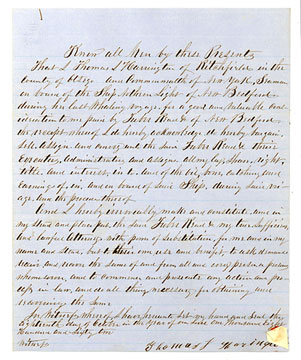 Know all Men by these Presents
That I Thomas S Harrington of Ritchfield in the
County of Otsego and Commonwealth of New York, Seaman
on board of the Ship Nothern Light of New Bedford
during her last Whaling voyage for a good and Valuable con
sideration to me paid by Tabr Read & of New Bedford
the receipt whereof I do hereby acknowledge do hereby bargain,
sell, assign and convey unto the said Tabr Read & their
Executors, Administrators and assigns all my lay, Share, right,
title and interest in & to and of the oil, bone, catching and
Earnings of, in, and on board of Said Ship, during Said voy
age, and the proceeds thereof
And I hereby irrevocably make and constitute and in
my stead and place put the said Tabr Read & my true, Sufficient
and lawful attorneys with power of Substitution, for me and in my
name and stead, but to their own use and benefit, to ask, demand
claim and receive the same of and from all and every person & persons
whomsoever, and to commence and prosecute any action and pro
cess in law, and do all things necessary for obtaining and
recovering the Same
In Witness Whereof I have hereunto Set my hand and Seal this
eighteenth day of October in the year of our Lord One Thousand Eight
Hundred and Sixty one
Witness
Thomas S Harington